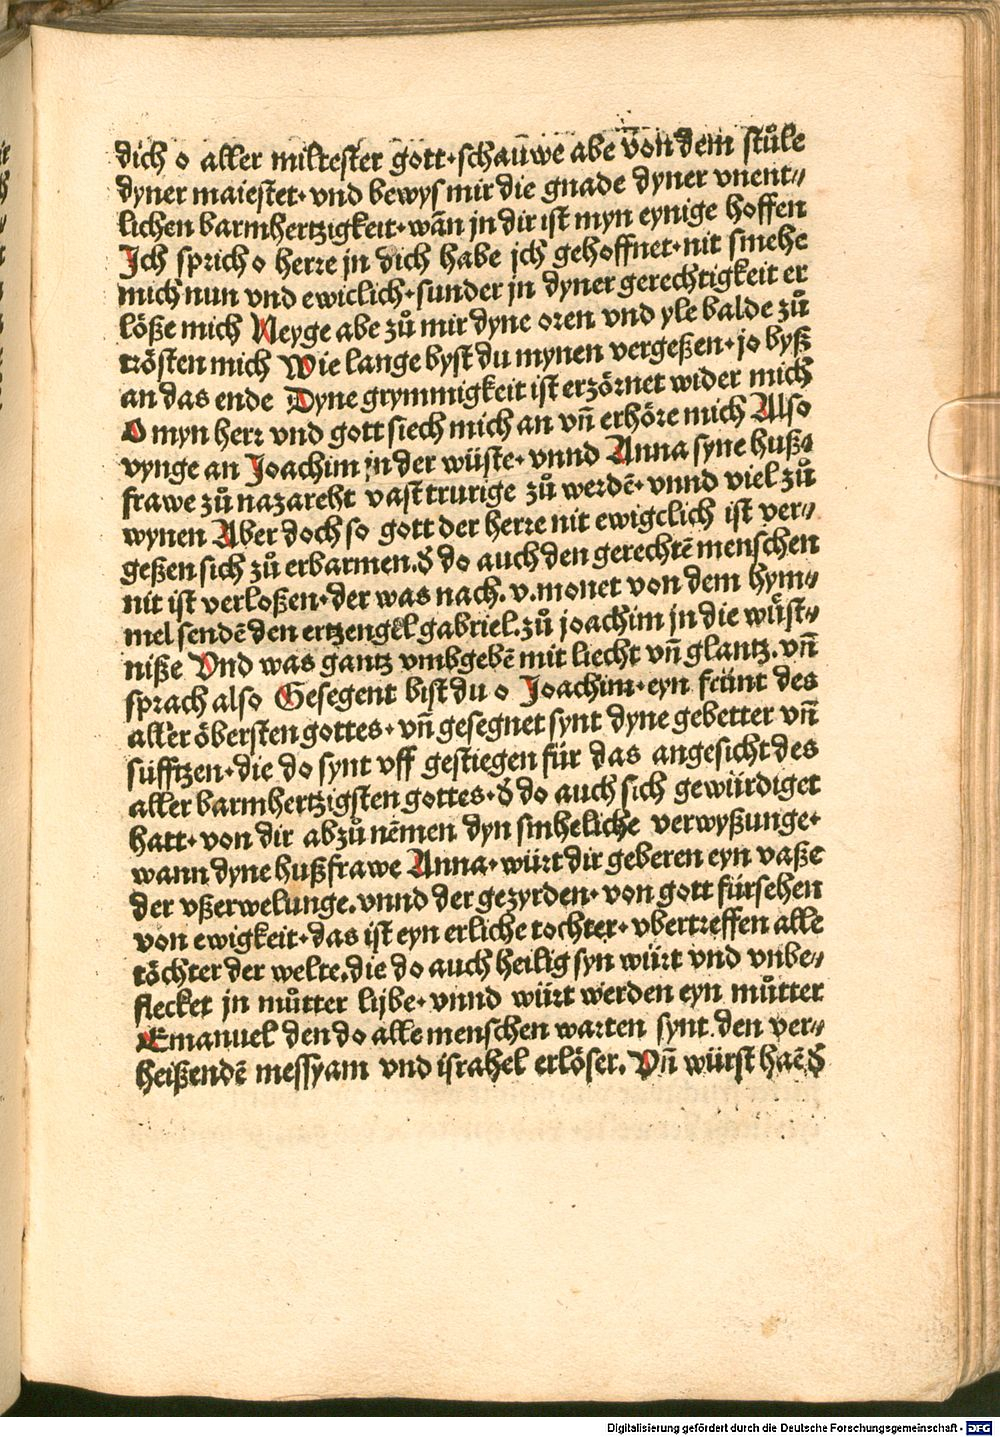 dich o aller miltester gott·schauwe abe von dem stůle
dyner maiestet· vnd bewys mir die gnade dyner vnent⸗
lichen barmhertzigkeit·wān jn dir ist myn eynige hoffen
Jch sprich o herre jn dich habe jch gehoffnet·nit smehe
mich nun vnd ewiclich·sunder jn dyner gerechtigkeit er
löße mich Neyge abe zů mir dyne oren vnd yle balde zů
trösten mich Wie lange byst du mynen vergeßen·jo byß
an das ende Dyne grymmigkeit ist erzörnet wider mich
O myn herr vnd gott siech mich an vn̄ erhöre mich Also
vynge an Joachim jn der wüste· vnnd Anna syne huß⸗
frawe zů nazareht vast trurige zů werdē· vnnd viel zů
wynen Aber doch so gott der herre nit ewigclich ist ver⸗
geßen sich zů erbarmen.d̕ do auch den gerechtē menschen
nit ist verloßen·der was nach.v.monet von dem hym⸗
mel sendē den ertzengel gabriel.zů joachim jn die wüst⸗
niße Vnd was gantz vmbgebē mit liecht vn̄ glantz.vn̄
sprach also Gesegent bist du o Joachim·eyn frünt des
aller öbersten gottes· vn̄ gesegnet synt dyne gebetter vn̄
süfftzen·die do synt vff gestiegen für das angesicht des
aller barmhertzigsten gottes·d̕ do auch sich gewürdiget
hatt·von dir abzů nēmen dyn smheliche verwyßunge·
wann dyne hußfrawe Anna·würt dir geberen eyn vaße
der vßerwelunge.vnnd der gezyrden· von gott fürsehen
von ewigkeit·das ist eyn erliche tochter· vbertreffen alle
töchter der welte.die do auch heilig syn würt vnd vnbe⸗
flecket jn můtter lijbe· vnnd würt werden eyn můtter
Emanuel den do alle menschen warten synt.den ver⸗
heißendē messyam vnd israhel erlöser. Vn̄ würst haē d̕
Digitalisierung gefördert durch die Deutsche Forschungsgemeinschaft - DFG